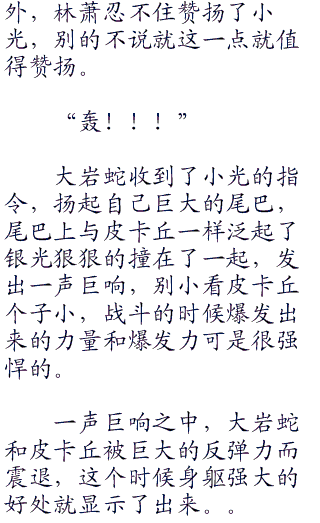 外，林萧忍不住赞扬了小
光，别的不说就这一点就值
得赞扬。
“轰！！！”
大岩蛇收到了小光的指
令，扬起自己巨大的尾巴，
尾巴上与皮卡丘一样泛起了
银光狠狠的撞在了一起，发
出一声巨响，别小看皮卡丘
个子小，战斗的时候爆发出
来的力量和爆发力可是很强
悍的。
一声巨响之中，大岩蛇
和皮卡丘被巨大的反弹力而
震退，这个时候身躯强大的
好处就显示了出来。。